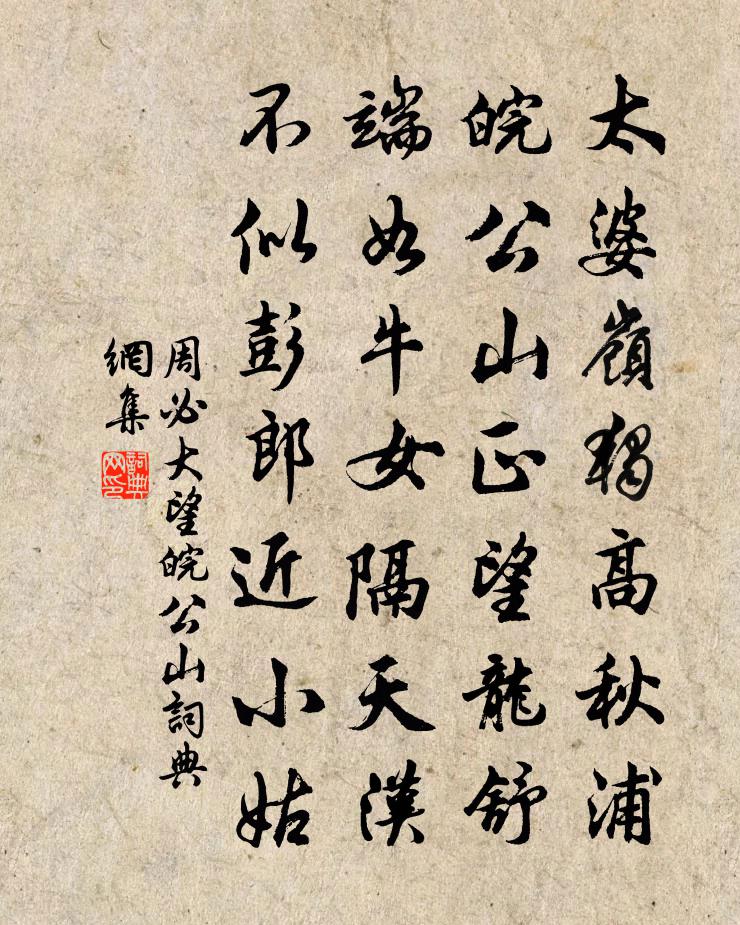 太婆嶺獨高秋浦
皖公山正望龍舒
端如牛女隔天漢
不似彭郎近小姑
周必大望皖公山詞典
網集
詞典
网印